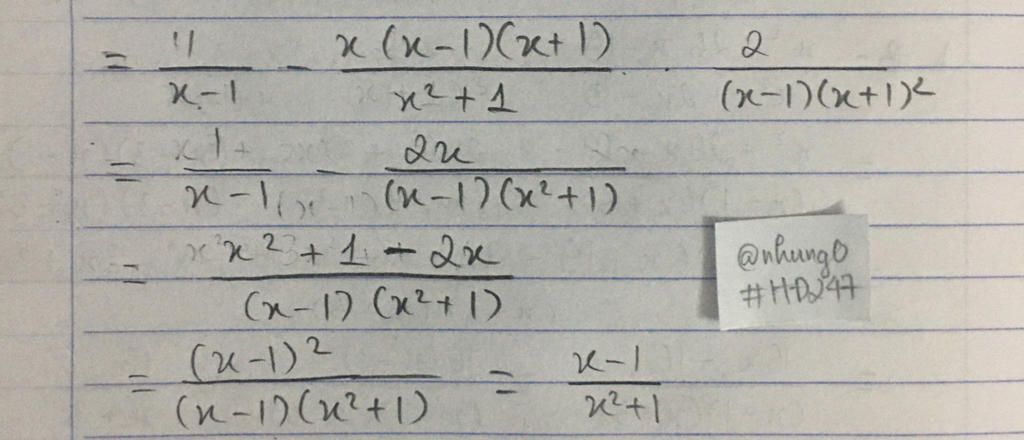 = 1/(x-1) - x(x-1)(x+1)/(x²+1) · 2/((x-1)(x+1)²)
= 1/(x-1) - 2x/((x-1)(x²+1))
= (x²+1-2x)/((x-1)(x²+1))
= (x-1)²/((x-1)(x²+1)) = (x-1)/(x²+1)
@nhung0
#HD247